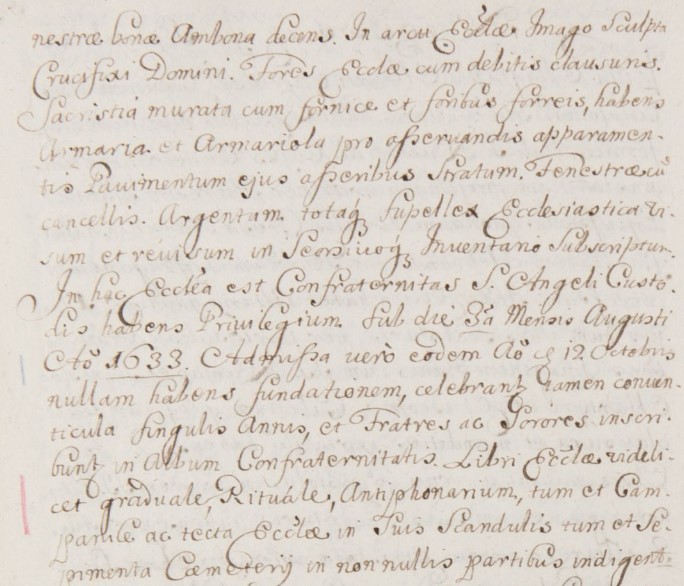 nestræ bonæ Ambona decens. In arcu Ecclæ Imago Sculpta
Crucifixi Domini. Fores Ecclæ cum debitis clausuris.
Sacristia murata cum fornice et foribus ferreis, habens
Armaria et Armariola pro asservandis apparamen-
tis Pavimentum ejus asseribus stratum. Fenestræ cũ
cancellis. Argentum totaqȝ supellex Ecclesiastica vi-
sum et revisum in Seorsivoqȝ Inventario Subscriptum.
In hac Ecclea est Confraternitas S. Angeli Custo-
dis habens Privilegium sub die 3a Mensis Augusti
Aõ 1633. Admissa verò eodem Aõ 12 Octobris
nullam habens fundationem, celebrant tamen conven-
ticula singulis Annis, et Fratres ac Sorores inscri-
bunt in Album Confraternitatis. Libri Ecclæ videli-
cet graduale, Rituale, Antiphonarium, tum et Cam-
panile ac tecta Ecclæ in suis Scandulis tum et Se-
pimenta Cæmeterij in nonnullis partibus indigent